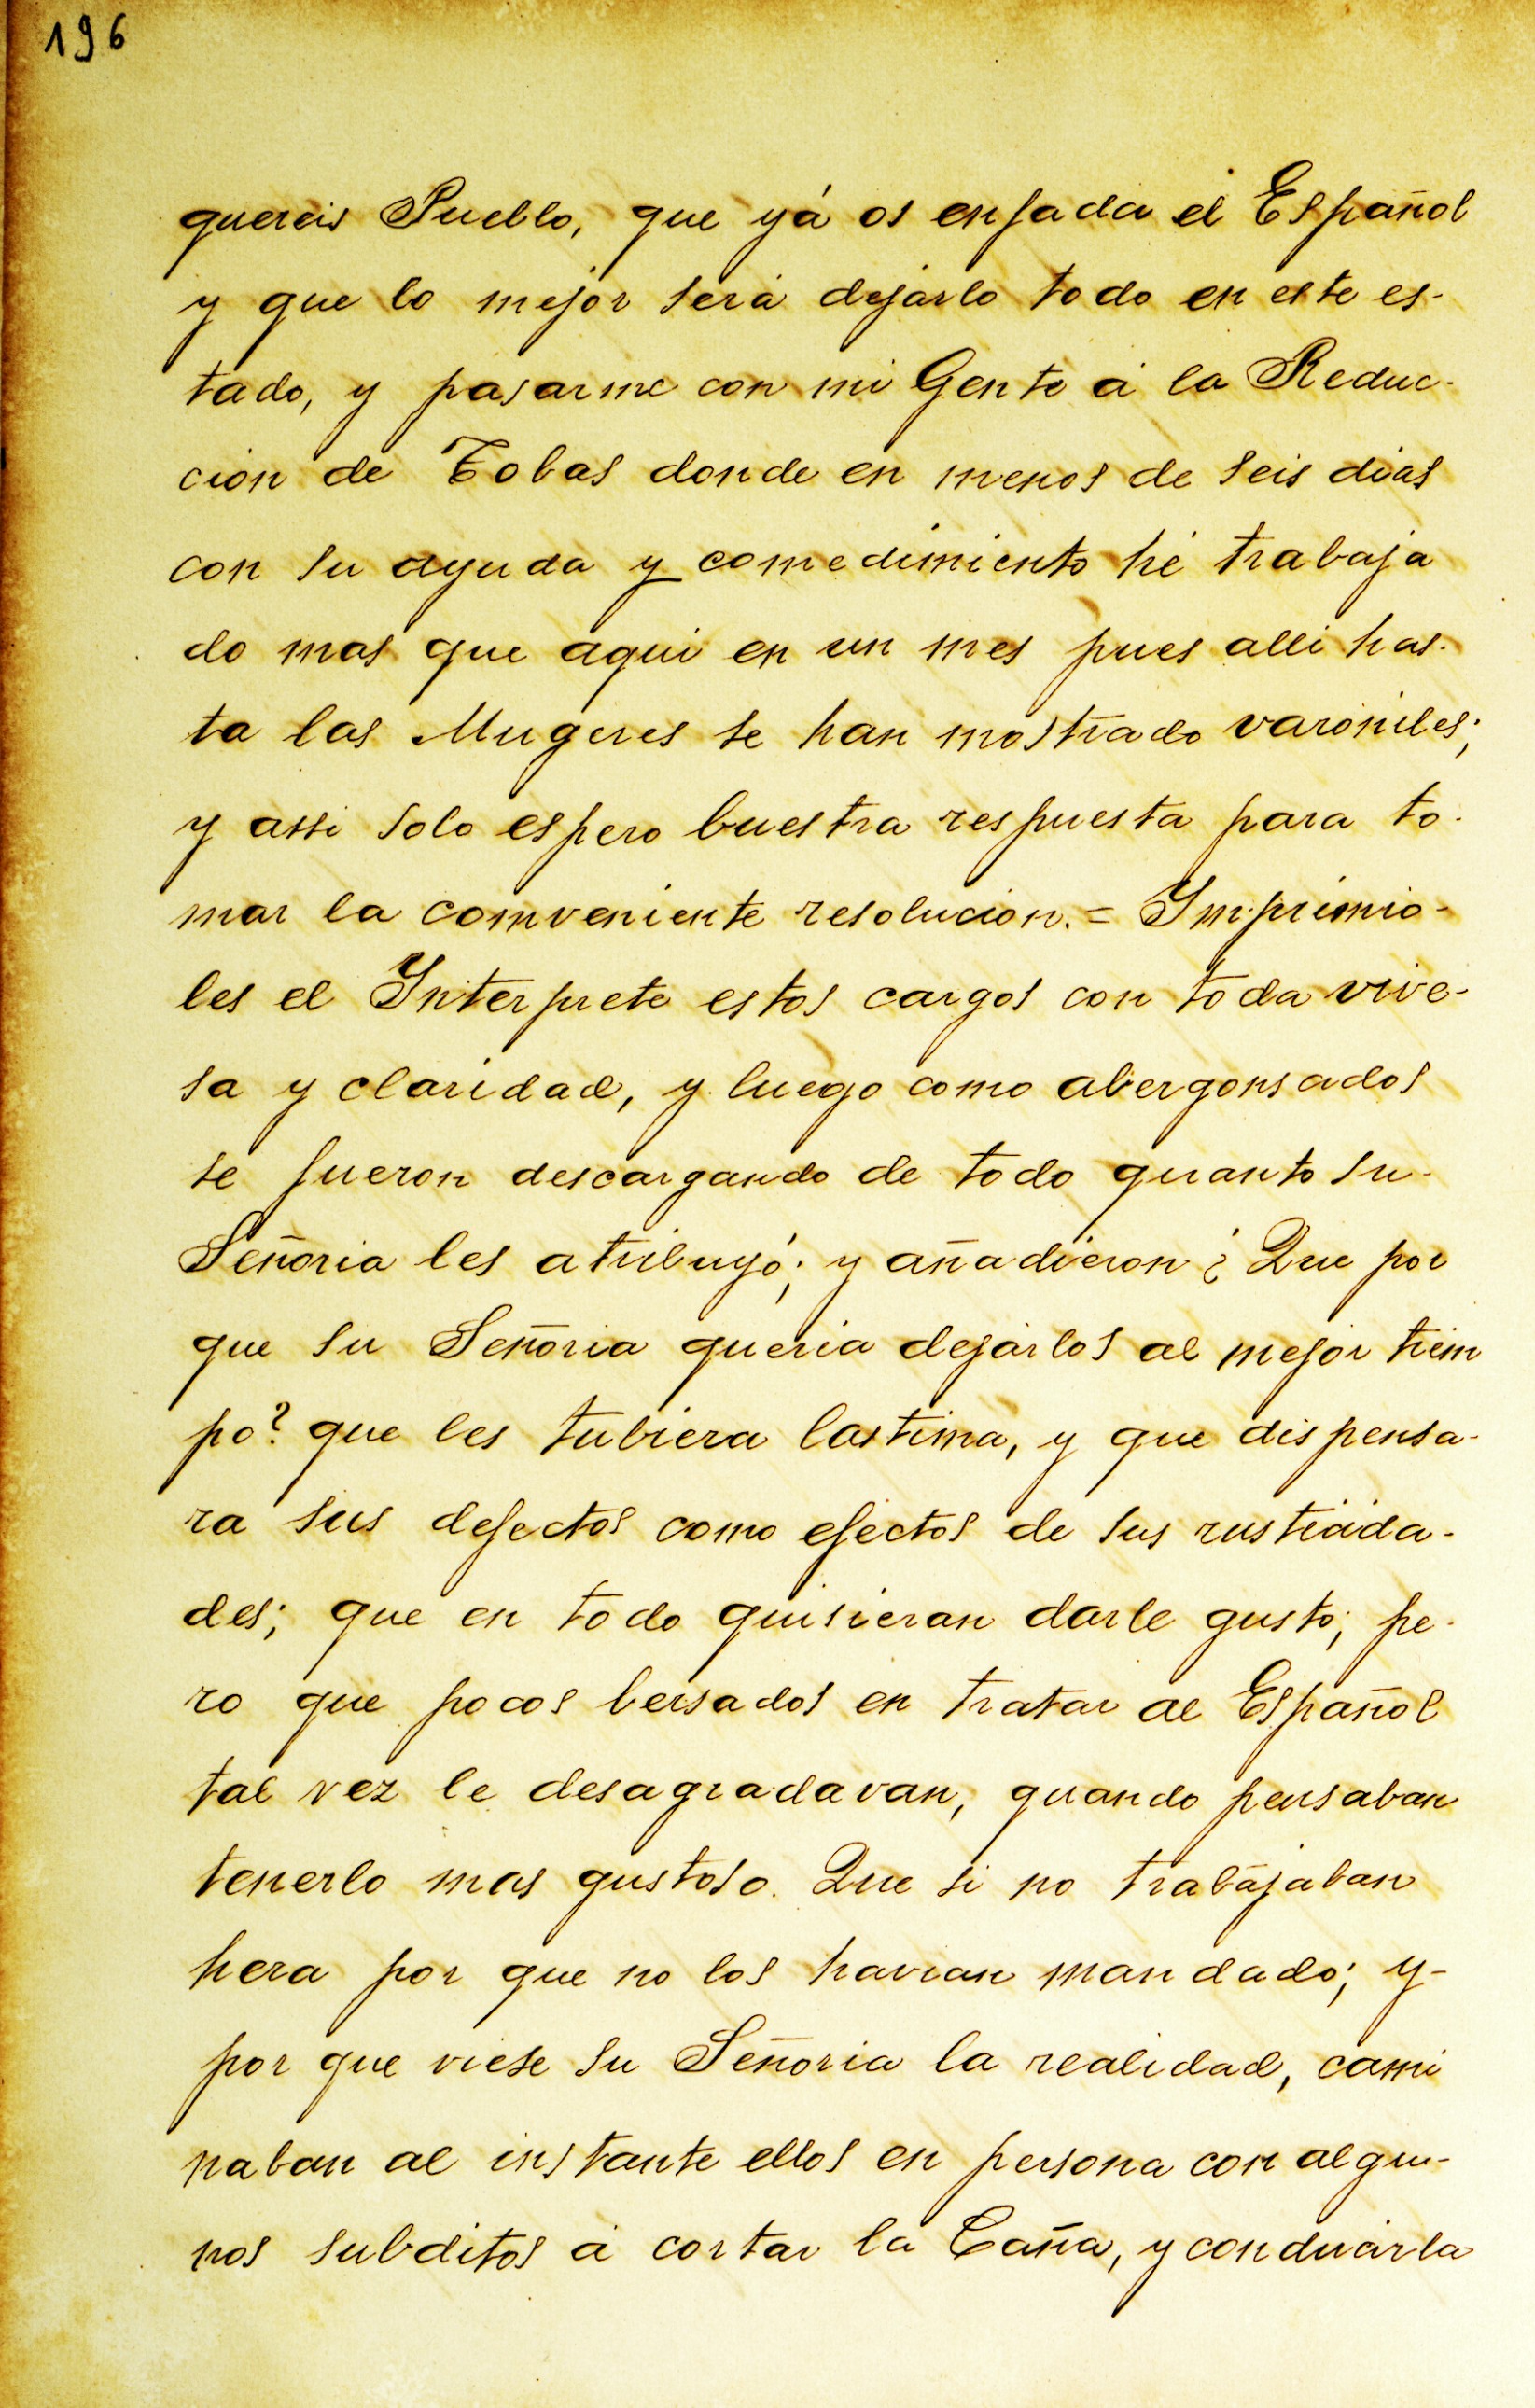 196
quereis Pueblo, que yá os enfada el Español
y que lo mejor será dejarlo todo en este es-
tado, y pasarme con mi Gente á la Reduc-
cion de Tobas donde en menos de seis dias
con su ayuda y comedimiento hé trabaja
do mas que aqui en un mes pues alli has-
ta las Mugeres se han mostrado varoniles;
y assi solo espero buestra respuesta para to-
mar la comveniente resolucion. = Imprimio-
les el Interprete estos cargos con toda vive-
sa y claridad, y luego como abergonsados
se fueron descargando de todo quanto su-
Señoria les atribuyó; y añadieron ¿ Que por
que su Señoria queria dejarlos al mejor tiem
po? que les tubiera lastima, y que dispensa-
ra sus defectos como efectos de sus rusticida-
des; que en todo quisieran darle gusto; pe-
ro que pocos bersados en tratar al Español
tal vez le desagradavan, quando pensaban
tenerlo mas gustoso. Que si no trabajaban
hera por que no los havian mandado; y-
por que viese su Señoria la realidad, cami
naban al instante ellos en persona con algu-
nos subditos á cortar la Caña, y conducirla